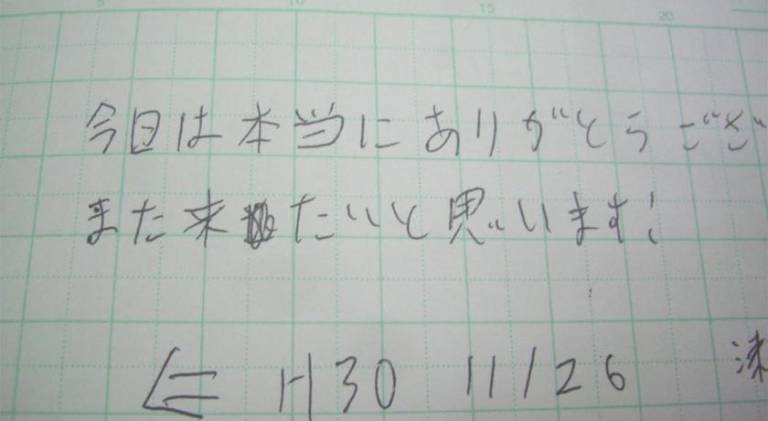 5 10 15 20
今日は本当にありがとうござ
また来たいと思います!
H30 11/26